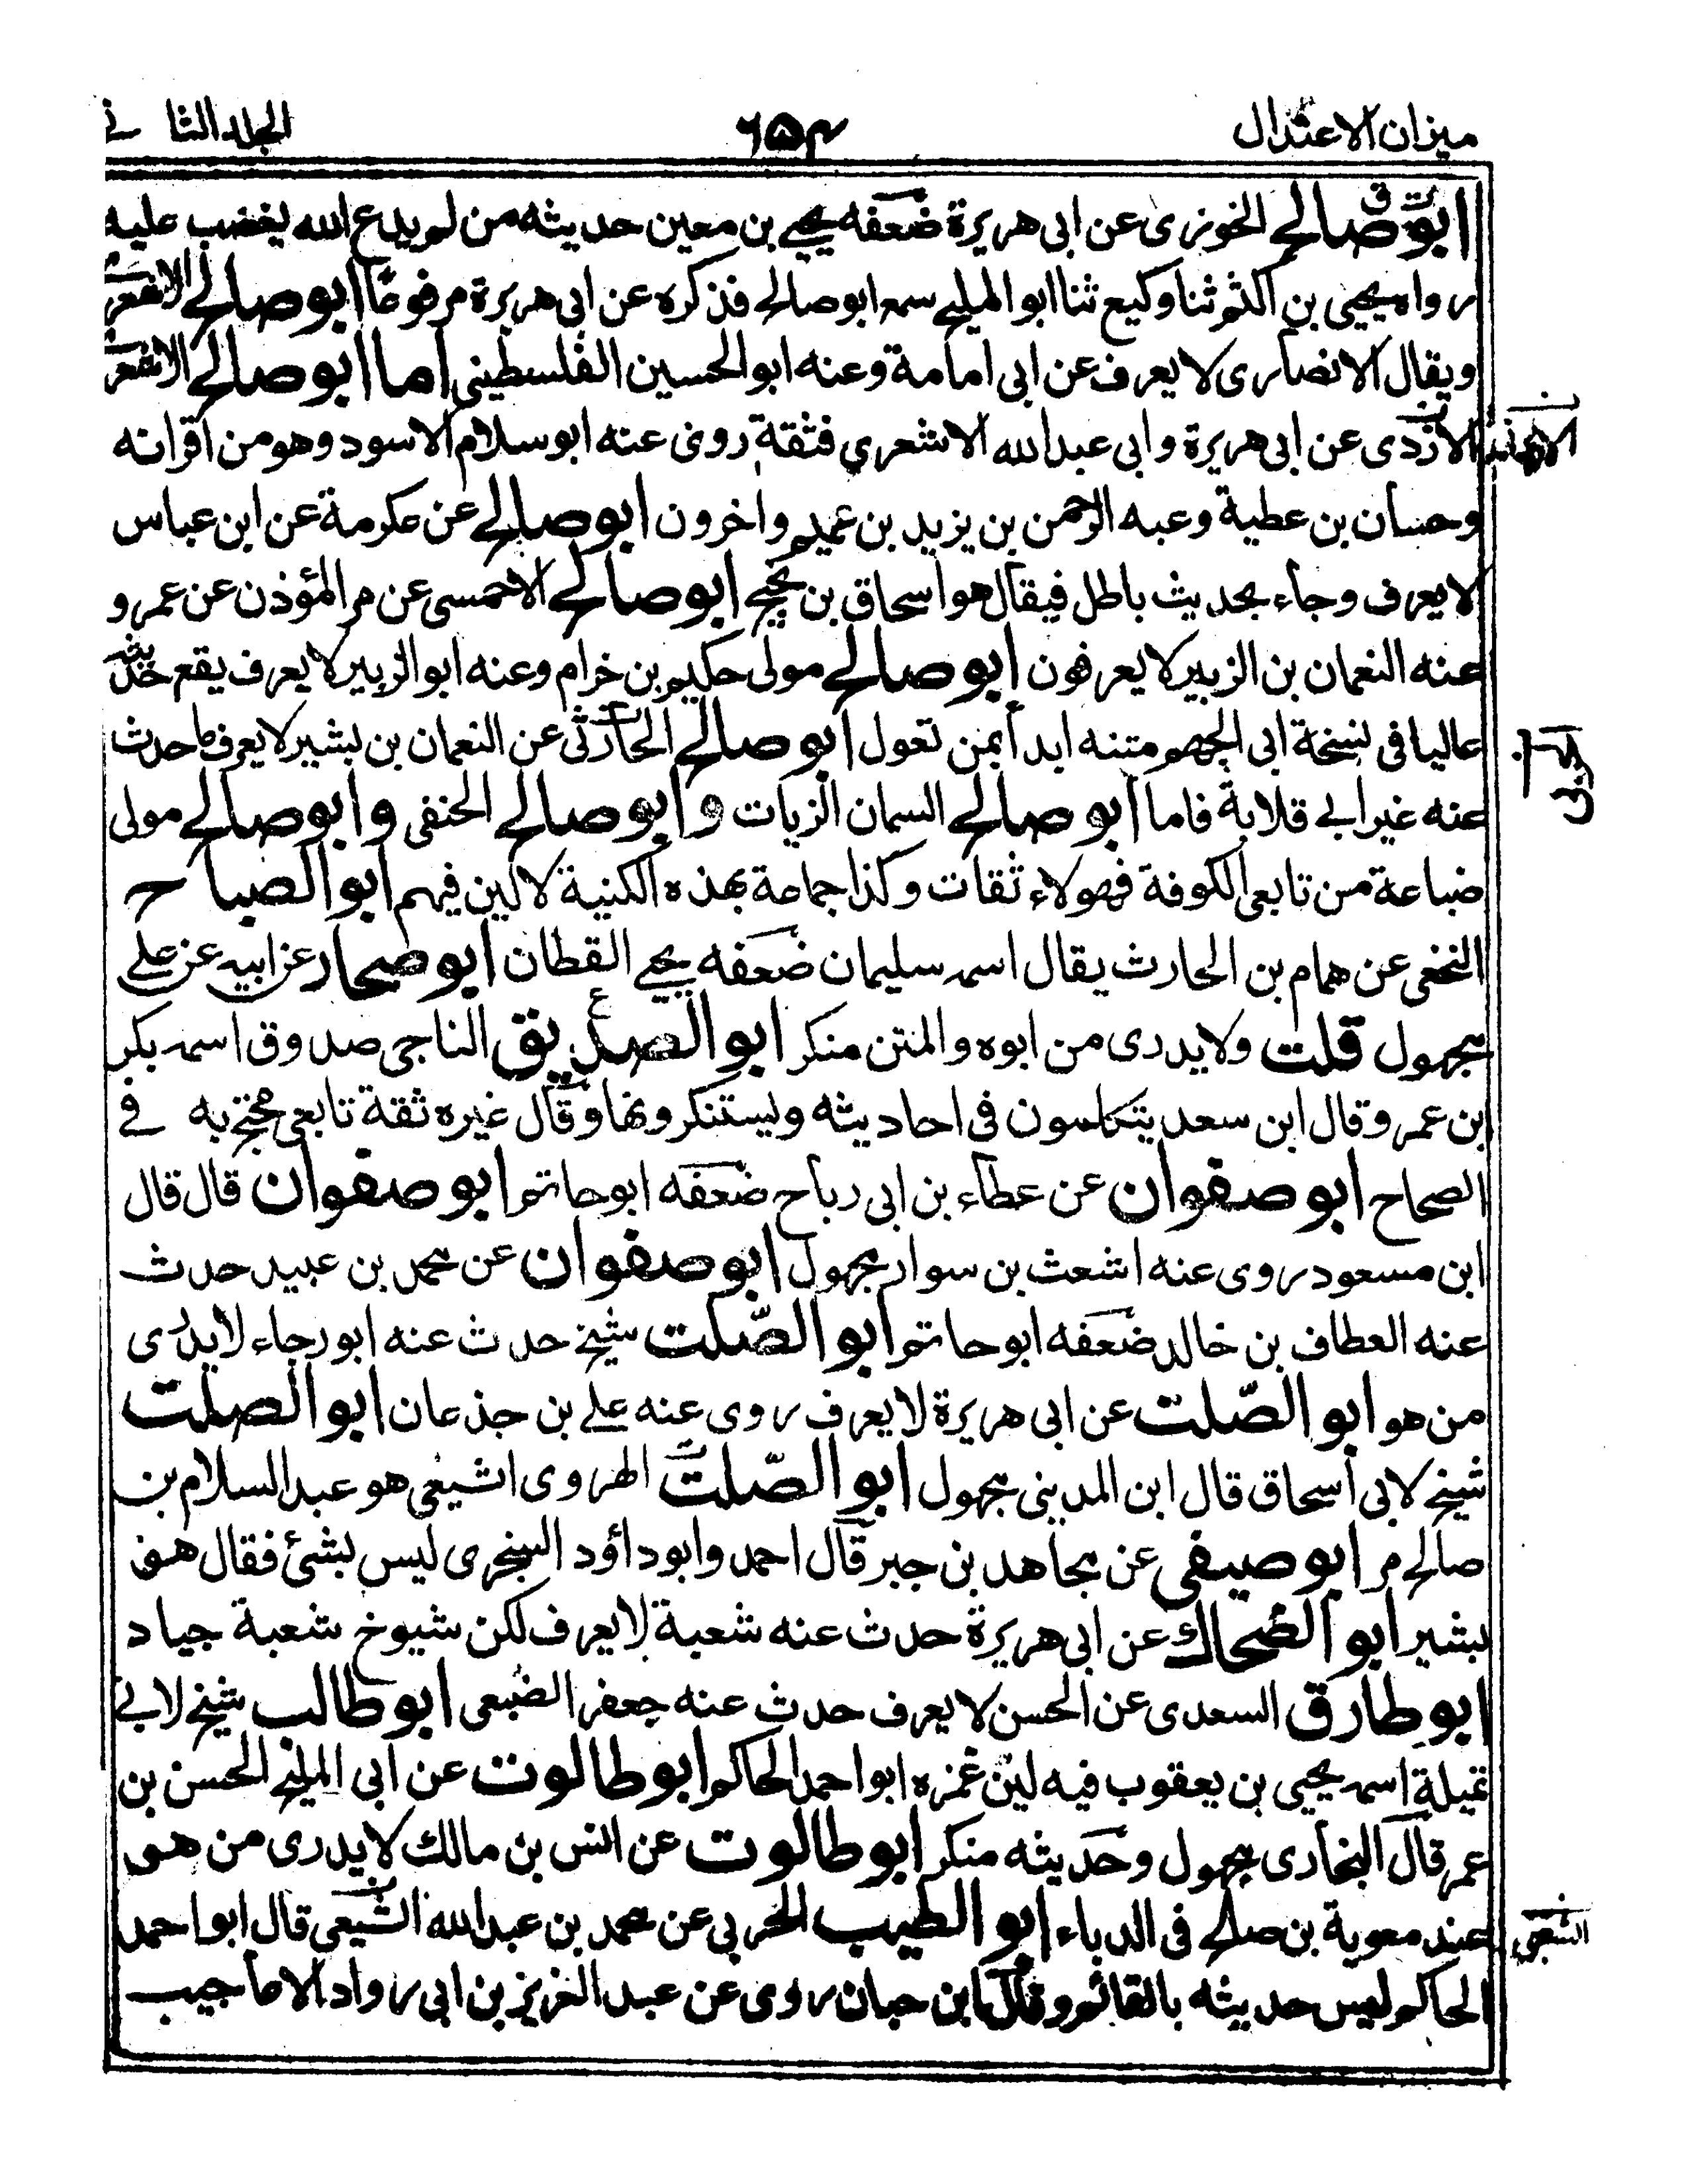 ميزان الاعتدال
٦٥٤
الجلد الثاني
ابو صالح الخوزى عن ابى هريرة ضعفه يحيى بن معين حديثه من لم يدع الله يغضب عليه
رواه يحيى بن اكثم ثنا وكيع ثنا ابو المليح سمع ابو صالح فذكره عن ابى هريرة مرفوعا ابو صالح الاشعرى
ويقال الانصارى لا يعرف عن ابى امامة وعنه ابو الحسين الفلسطينى اما ابو صالح الاشعرى
الأزدى عن ابى هريرة وابى عبد الله الاشعري فثقة روى عنه ابو سلام الاسود وهو من اقرانه
وحسان بن عطية وعبد الرحمن بن يزيد بن عميم واخرون ابو صالح عن عكرمة عن ابن عباس
لا يعرف وجاء بحديث باطل فيقال هو اسحاق بن نجيح ابو صالح الاحمسى عن مر المؤذن عن عمرو
عنه النعمان بن الزبير لا يعرفون ابو صالح مولى حكيم بن خرام وعنه ابو الزبير لا يعرف يقع حديثه
عاليا فى نسخة ابى الجهم متنه ابدأ بمن تعول ابو صالح الحارثى عن النعمان بن بشير لا يعرف ما حدث
عنه غير ابى قلابة فاما ابو صالح السمان الزيات وابو صالح الحنفى وابو صالح مولى
ضباعة من تابعى الكوفة فهولاء ثقات وكذا جماعة بهذه الكنية لا لين فيهم ابو الصباح
النخعى عن همام بن الحارث يقال اسمه سليمان ضعفه يحيى القطان ابو صحار عن ابيه عن على
مجهول قلت ولا يدرى من ابوه والمتن منكر ابو الصديق الناجى صدوق اسمه بكر
بن عمر وقال ابن سعد يتكلمون فى احاديثه ويستنكرونها وقال غيره ثقة تابعى محتج به فى
الصحاح ابو صفوان عن عطاء بن ابى رباح ضعفه ابو حاتم ابو صفوان قال قال
ابن مسعود روى عنه اشعث بن سوار مجهول ابو صفوان عن محمد بن عبيد حدث
عنه العطاف بن خالد ضعفه ابو حاتم ابو الصّلت شيخ حدث عنه ابو رجاء لا يدرى
من هو ابو الصّلت عن ابى هريرة لا يعرف روى عنه على بن جذعان ابو الصلت
شيخ لابى اسحاق قال ابن المدينى مجهول ابو الصّلت الهروى الشيعى هو عبد السلام بن
صالح مر ابو صيفى عن مجاهد بن جبر قال احمد وابو داؤد السجزى ليس بشئ فقال هو
بشير ابو الضحاك عن ابى هريرة حدث عنه شعبة لا يعرف لكن شيوخ شعبة جياد
ابو طارق السعدى عن الحسن لا يعرف حدث عنه جعفر الضبعى ابو طالب شيخ لابى
تميلة اسمه يحيى بن يعقوب فيه لين غمزه ابو احمد الحاكم ابو طالوت عن ابى المليح الحسن بن
عمر قال البخارى مجهول وحديثه منكر ابو طالوت عن انس بن مالك لا يدرى من هو
عند معوية بن صالح فى الدباء ابو الطيب الحربى عن محمد بن عبد الله الشيعى قال ابو احمد
الحاكم ليس حديثه بالقائم وقال ابن حبان روى عن عبد العزيز بن ابى رواد الاعاجيب
الشعبى